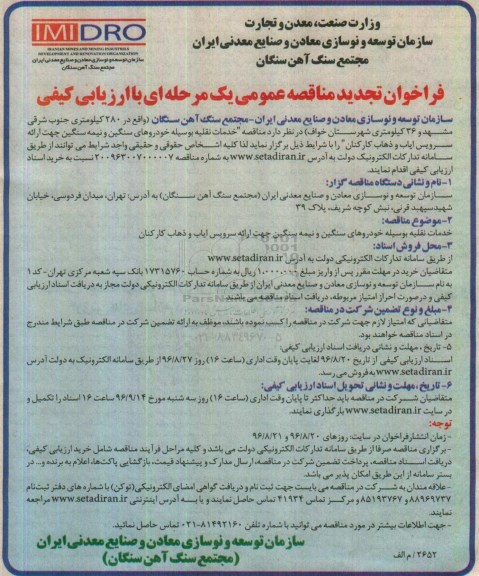 IMIDRO
IRANIAN MINES AND MINING INDUSTRIES
DEVELOPMENT AND RENOVATION ORGANIZATION
سازمان توسعه و نوسازی معادن و صنایع معدنی ایران
مجتمع سنگ آهن سنگان
وزارت صنعت، معدن و تجارت
سازمان توسعه و نوسازی معادن و صنایع معدنی ایران
مجتمع سنگ آهن سنگان
فراخوان تجدید مناقصه عمومی یک مرحله‌ای با ارزیابی کیفی
سازمان توسعه و نوسازی معادن و صنایع معدنی ایران-مجتمع سنگ آهن سنگان (واقع در ۲۸۰ کیلومتری جنوب شرقی
مشهد و ۳۶ کیلومتری شهرستان خواف) در نظر دارد مناقصه "خدمات نقلیه بوسیله خودروهای سنگین و نیمه سنگین جهت ارائه
سرویس ایاب و ذهاب کارکنان" را با شرایط ذیل برگزار نماید لذا کلیه اشخاص حقوقی و حقیقی واجد شرایط می توانند از طریق
سامانه تدارکات الکترونیک دولت به آدرس www.setadiran.ir به شماره مناقصه ۲۰۰۹۶۳۰۰۷۰۰۰۰۰۷ نسبت به خرید اسناد
ارزیابی کیفی اقدام نمایند.
۱-نام و نشانی دستگاه مناقصه گزار:
سازمان توسعه و نوسازی معادن و صنایع معدنی ایران (مجتمع سنگ آهن سنگان) به آدرس: تهران، میدان فردوسی، خیابان
شهید سپهبد قرنی، نبش کوچه شریف، پلاک ۳۹
۲-موضوع مناقصه:
خدمات نقلیه بوسیله خودروهای سنگین و نیمه سنگین جهت ارائه سرویس ایاب و ذهاب کارکنان
۳-محل فروش اسناد:
از طریق سامانه تدارکات الکترونیکی دولت به آدرس www.setadiran.ir
متقاضیان خرید در مهلت مقرر پس از واریز مبلغ ۱.۰۰۰.۰۰۰ ریال به شماره حساب ۱۷۳۱۵۷۶۰ بانک سپه شعبه مرکزی تهران- کد ۱
به نام سازمان توسعه و نوسازی معادن و صنایع معدنی ایران از طریق سامانه تدارکات الکترونیکی دولت مجاز به دریافت اسناد ارزیابی
کیفی و درصورت احراز امتیاز مربوطه، دریافت اسناد مناقصه می باشند.
۴-مبلغ و نوع تضمین شرکت در مناقصه:
متقاضیانی که امتیاز لازم جهت شرکت در مناقصه را کسب نموده باشند، موظف به ارائه تضمین شرکت در مناقصه طبق شرایط مندرج
در اسناد مناقصه خواهند بود.
۵- تاریخ، مهلت و نشانی دریافت اسناد ارزیابی کیفی:
اسناد ارزیابی کیفی از تاریخ ۹۶/۸/۲۰ لغایت پایان وقت اداری (ساعت ۱۶) روز ۹۶/۸/۲۷ از طریق سامانه الکترونیک به دولت آدرس
www.setadiran.ir به فروش می رسد.
۶- تاریخ، مهلت و نشانی تحویل اسناد ارزیابی کیفی:
متقاضیان شرکت در مناقصه باید حداکثر تا پایان وقت اداری (ساعت ۱۶) روز سه شنبه مورخ ۹۶/۹/۱۴ ساعت ۱۶ اسناد را تکمیل و
در سایت www.setadiran.ir بارگذاری نمایند.
توجه:
-زمان انتشار فراخوان در سایت: روزهای ۹۶/۸/۲۰ و ۹۶/۸/۲۱
-برگزاری مناقصه صرفا از طریق سامانه تدارکات الکترونیکی دولت می باشد و کلیه مراحل فرآیند مناقصه شامل خرید ارزیابی کیفی،
دریافت اسناد مناقصه، پرداخت تضمین شرکت در مناقصه، ارسال مدارک و پیشنهاد قیمت، بازگشایی پاکت‌ها، اعلام به برنده و... در
بستر سامانه از این طریق امکان پذیر می باشد.
-علاقه مندان به شرکت در مناقصه می بایست جهت ثبت نام و دریافت گواهی امضای الکترونیکی (توکن) با شماره های دفتر ثبت‌نام
۸۸۹۶۹۷۳۷ و ۸۵۱۹۳۷۶۷ و مرکز تماس ۴۱۹۳۴ تماس حاصل نمایند و یا به آدرس اینترنتی www.setadiran.ir مراجعه
نمایند.
-جهت اطلاعات بیشتر در مورد مناقصه می توانید با شماره تلفن ۸۱۴۹۲۱۶۰-۰۲۱ تماس حاصل نمائید.
سازمان توسعه و نوسازی معادن و صنایع معدنی ایران
(مجتمع سنگ آهن سنگان)
۲۶۵۲ / م الف